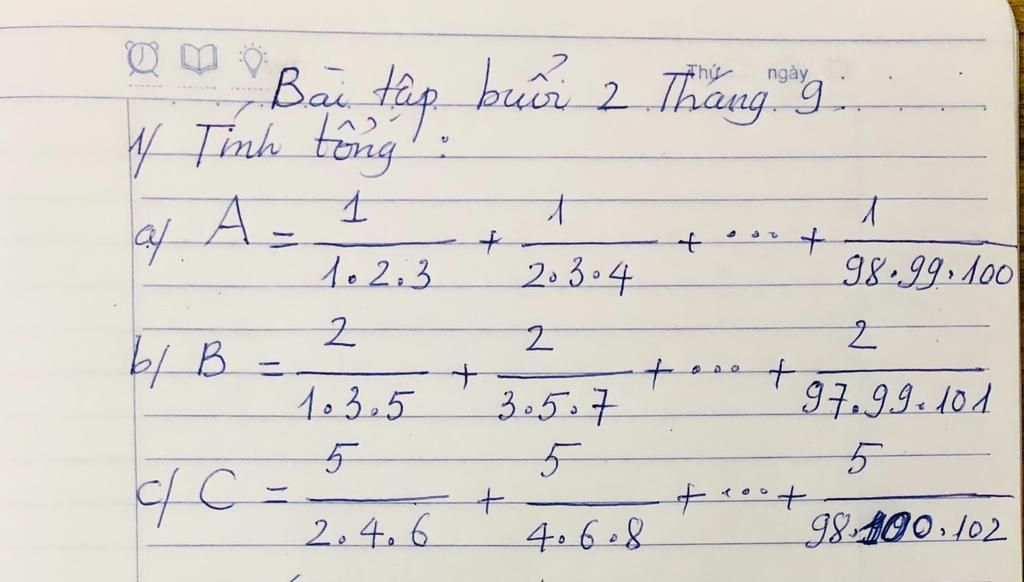 Thứ ngày
Bài tập buổi 2 Tháng 9
1/ Tính tổng :
a/ A = 1/1.2.3 + 1/2.3.4 + ... + 1/98.99.100
b/ B = 2/1.3.5 + 2/3.5.7 + ... + 2/97.99.101
c/ C = 5/2.4.6 + 5/4.6.8 + ... + 5/98.100.102